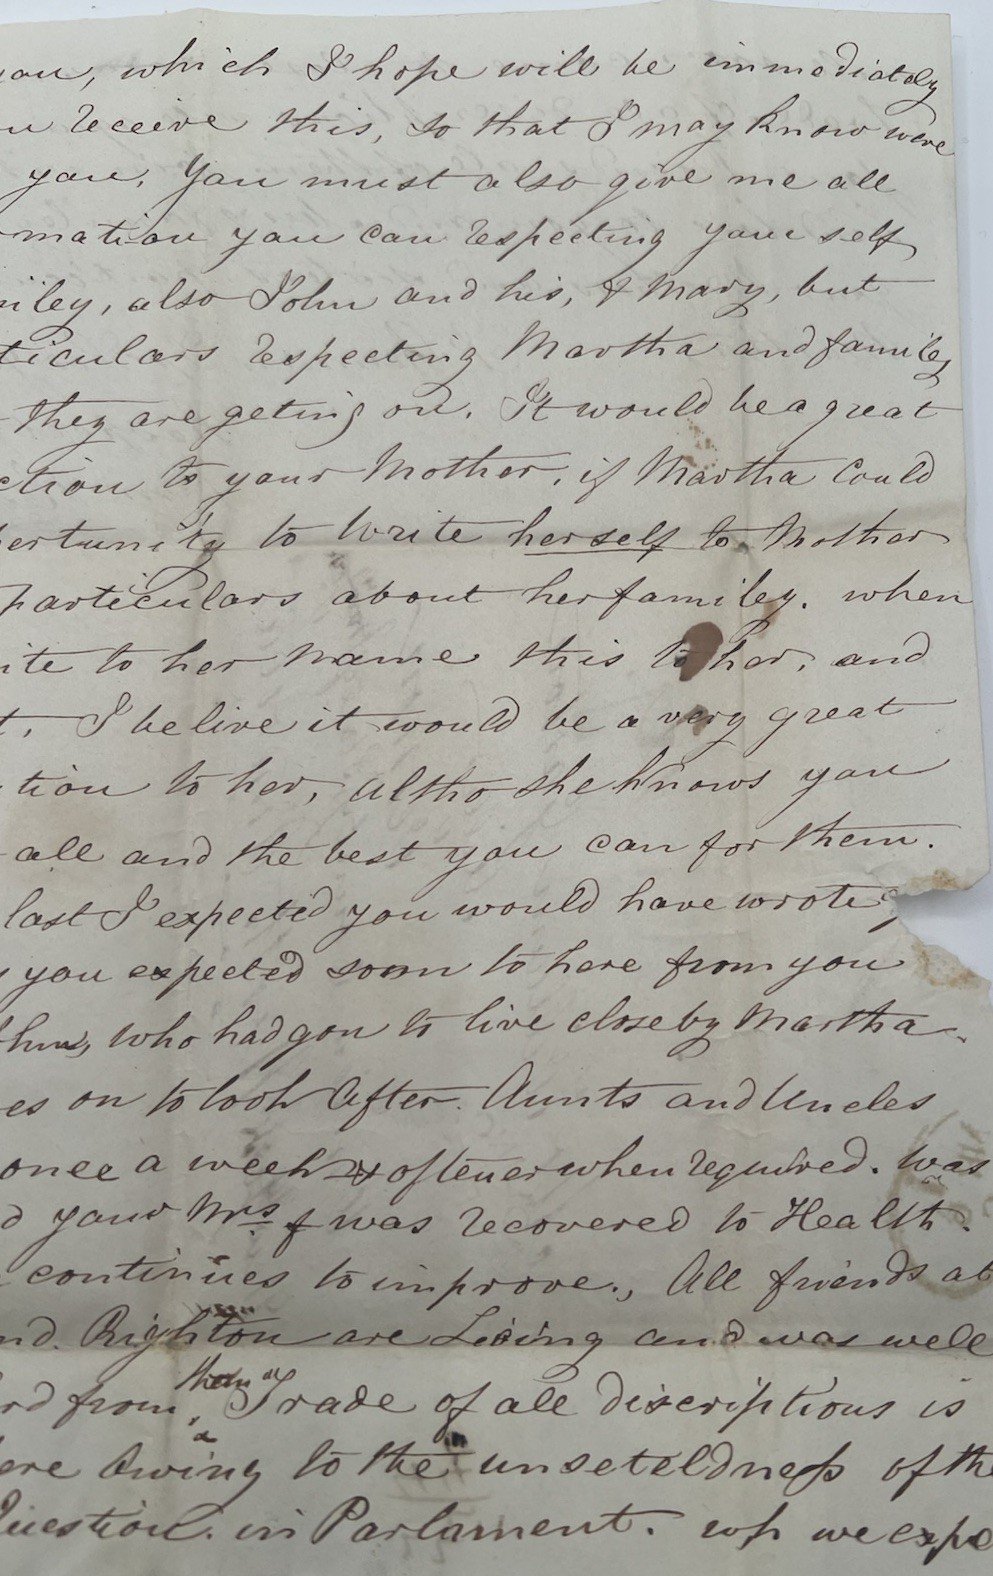 you, which I hope will be immediately
u receive this, so that I may know were
you. You must also give me all
mation you can respecting your self
miley, also John and his, & Mary, but
ticulars respecting Martha and familey
they are geting on. It would be a great
ction to your Mother, if Martha could
pertunity to write herself to Mother
particulars about her familey. when
ite to her name this to her, and
t, I belive it would be a very great
tion to her, altho she knows you
all and the best you can for them.
last I expected you would have wrote
you expected soon to here from you
who had gon to live close by Martha
es on to look after. Aunts and Uncles
once a week & oftener when required. was
d your Mrs F was recovered to Health.
continues to improve., All friends at
nd. Brighton are Living and was well
rd from them Trade of all discriptions is
ere owing to the unseteldness of the
Question. in Parlament. wh we expe